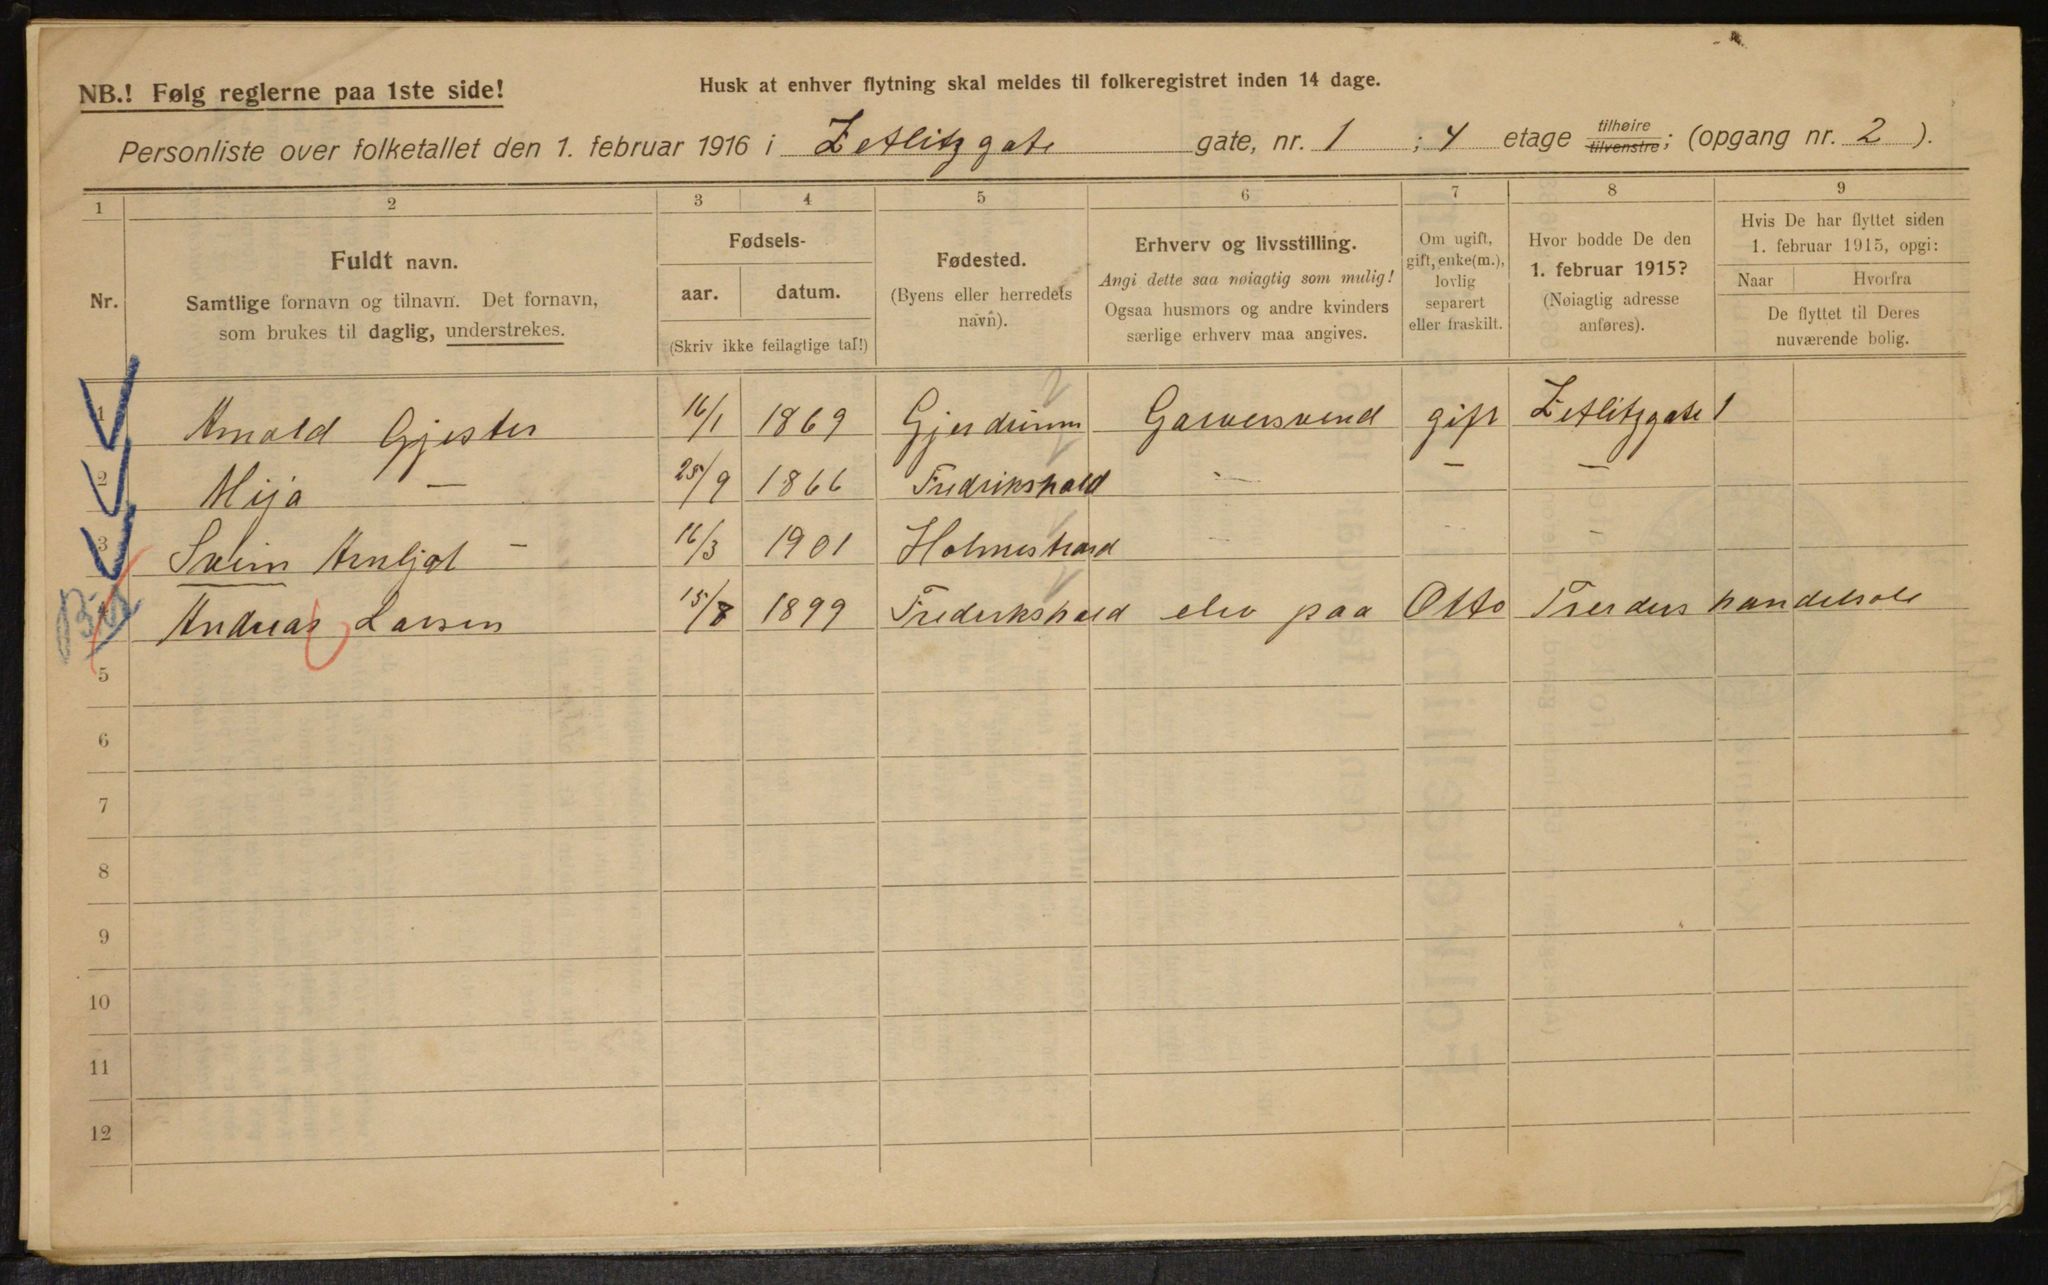 NB.! Følg reglerne paa 1ste side!
Husk at enhver flytning skal meldes til folkeregistret inden 14 dage.
Personliste over folketallet den 1. februar 1916 i Zetlitzgate gate, nr. 1 ; 4 etage tilhøire tilvenstre; (opgang nr. 2 ).
1 2 3 4 5 6 7 8 9
Nr.
Fuldt navn.
Samtlige fornavn og tilnavn. Det fornavn,
som brukes til daglig, understrekes.
Fødsels-
aar. datum.
(Skriv ikke feilagtige tal!)
Fødested.
(Byens eller herredets
navn).
Erhverv og livsstilling.
Angi dette saa nøiagtig som mulig!
Ogsaa husmors og andre kvinders
særlige erhverv maa angives.
Om ugift,
gift, enke(m.),
lovlig
separert
eller fraskilt.
Hvor bodde De den
1. februar 1915?
(Nøiagtig adresse
anføres).
Hvis De har flyttet siden
1. februar 1915, opgi:
Naar Hvorfra
De flyttet til Deres
nuværende bolig.
1 Arnold Gjester 16/1 1869 Gjerdrum Garversvend gift Zetlitzgate 1
2 Mija — 25/9 1866 Fredrikshald — — —
3 Svein Arnljot — 16/3 1901 Holmestrand — — —
4 Andreas Larsen 15/8 1899 Frederikshald elev paa Otto Treiders handelsole
5
6
7
8
9
10
11
12